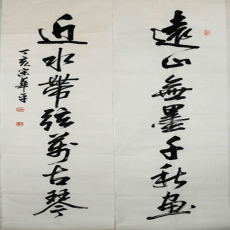 遠山無墨千秋畫
近水帶弦萬古琴
丁亥宗華書